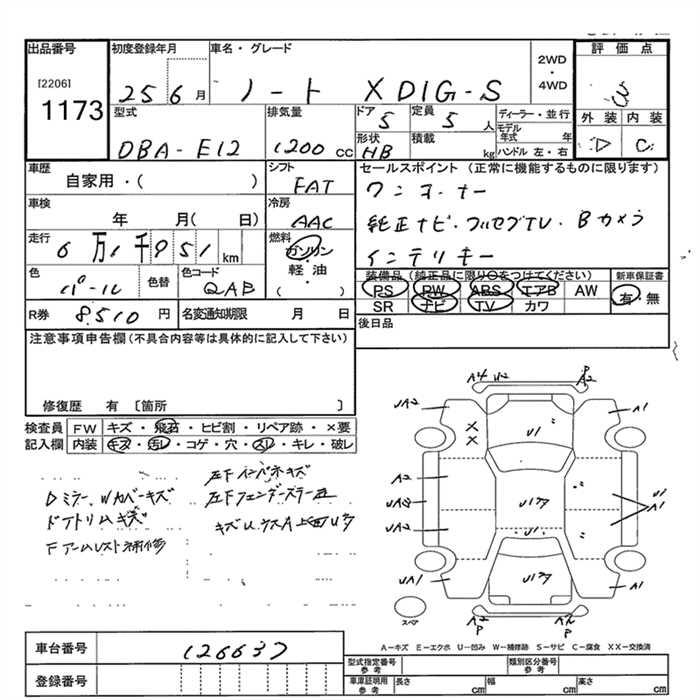 出品番号
[2206]
1173
初度登録年月
25 6 月
車名・グレード
ノート X DIG-S
2WD
・
4WD
評価点
3
外装 内装
D C
型式
DBA-E12
排気量
1200 cc
ドア
5
定員
5 人
形状
HB
積載
kg
ディーラー・並行
モデル年式 年
ハンドル 左・右
車歴
自家用・( )
シフト
FAT
セールスポイント (正常に機能するものに限ります)
ワンオーナー
純正ナビ・フルセグTV・Bカメラ
インテリキー
車検
年 月( 日)
冷房
AAC
走行
6万1千951 km
燃料
ガソリン
・
軽油
・
( )
色
パール
色替
色コード
QAB
R券 8510 円
名変通知期限 月 日
装備品 (純正品に限り○をつけてください)
PS PW ABS エアB AW
SR ナビ TV カワ
新車保証書
有・無
後日品
注意事項申告欄(不具合内容等は具体的に記入して下さい)
修復歴 有 〔箇所 〕
検査員記入欄
FW キズ・飛石・ヒビ割・リペア跡・×要
内装 キズ・汚レ・コゲ・穴・スレ・キレ・破レ
Dミラー、Wカバーキズ
ドアトリムキズ
Fアームレスト補修
左下インパネキズ
A4 U2
A2
P
UA2
A1
X
X
U1
A2
UA3
UA2
U17
U1
A1
U1
UA1
U17
A1
A2
P
A2
P
スペア
A－キズ E－エクボ U－凹み W－補修跡 S－サビ C－腐食 XX－交換済
車台番号
126637
登録番号
型式指定番号
参考
類別区分番号
参考
車庫証明用
参考
長さ cm
幅 cm
高さ cm